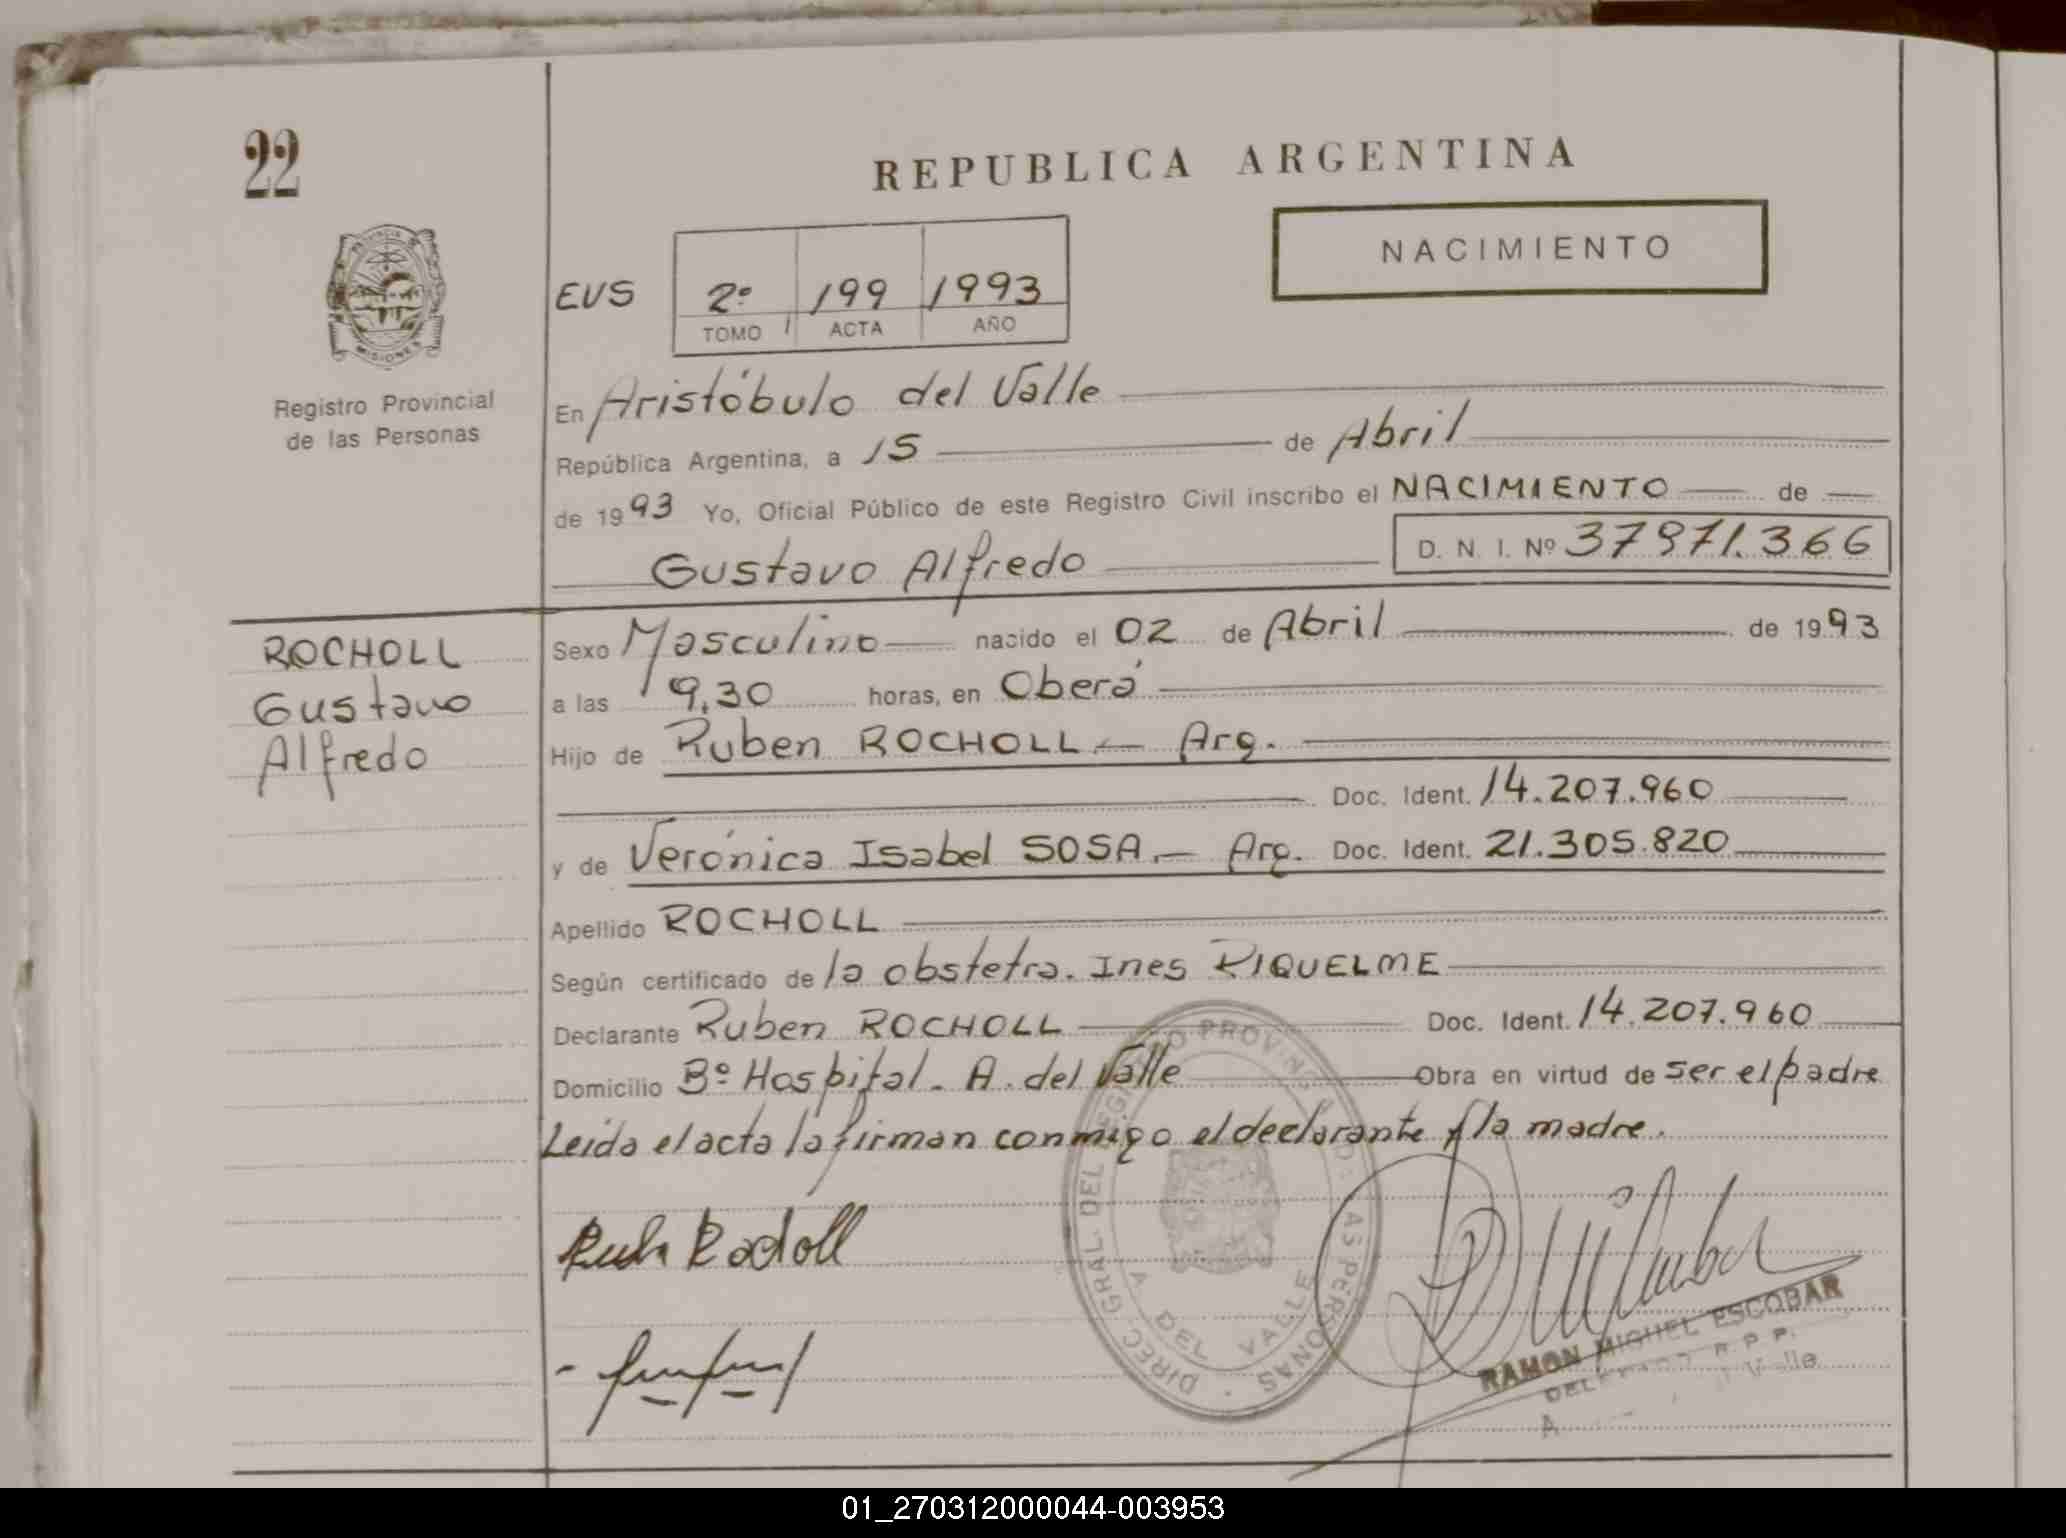 22
REPUBLICA ARGENTINA
NACIMIENTO
PROVINCIA DE
MISIONES
Registro Provincial
de las Personas
EVS
2º 199 1993
TOMO ACTA AÑO
En Aristóbulo del Valle
República Argentina, a 15 de Abril
de 1993 Yo, Oficial Público de este Registro Civil inscribo el NACIMIENTO de
Gustavo Alfredo D. N. I. Nº 37971.366
ROCHOLL
Gustavo
Alfredo
Sexo Masculino nacido el 02 de Abril de 1993
a las 9.30 horas, en Oberá
Hijo de Ruben ROCHOLL.— Arg.
Doc. Ident. 14.207.960
y de Verónica Isabel SOSA.— Arg. Doc. Ident. 21.305.820
Apellido ROCHOLL
Según certificado de la obstetra. Ines RIQUELME
Declarante Ruben ROCHOLL Doc. Ident. 14.207.960
Domicilio Bº Hospital. A. del Valle Obra en virtud de ser el padre
Leída el acta la firman conmigo el declarante y la madre.
DIREC. GRAL. DEL REGISTRO PROVINCIAL DE LAS PERSONAS
A. DEL VALLE
RAMON MIGUEL ESCOBAR
R. P. P.
Valle
01_270312000044-003953